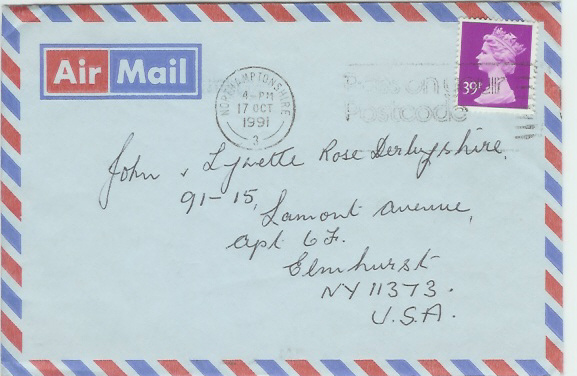 Air Mail
NORTHAMPTONSHIRE
4-PM
17 OCT
1991
3
Pass on y
Postcode
39
John & Lynette Rose Derbyshire,
91-15,
Lamont Avenue,
Apt 6F.
Elmhurst
NY 11373.
U.S.A.